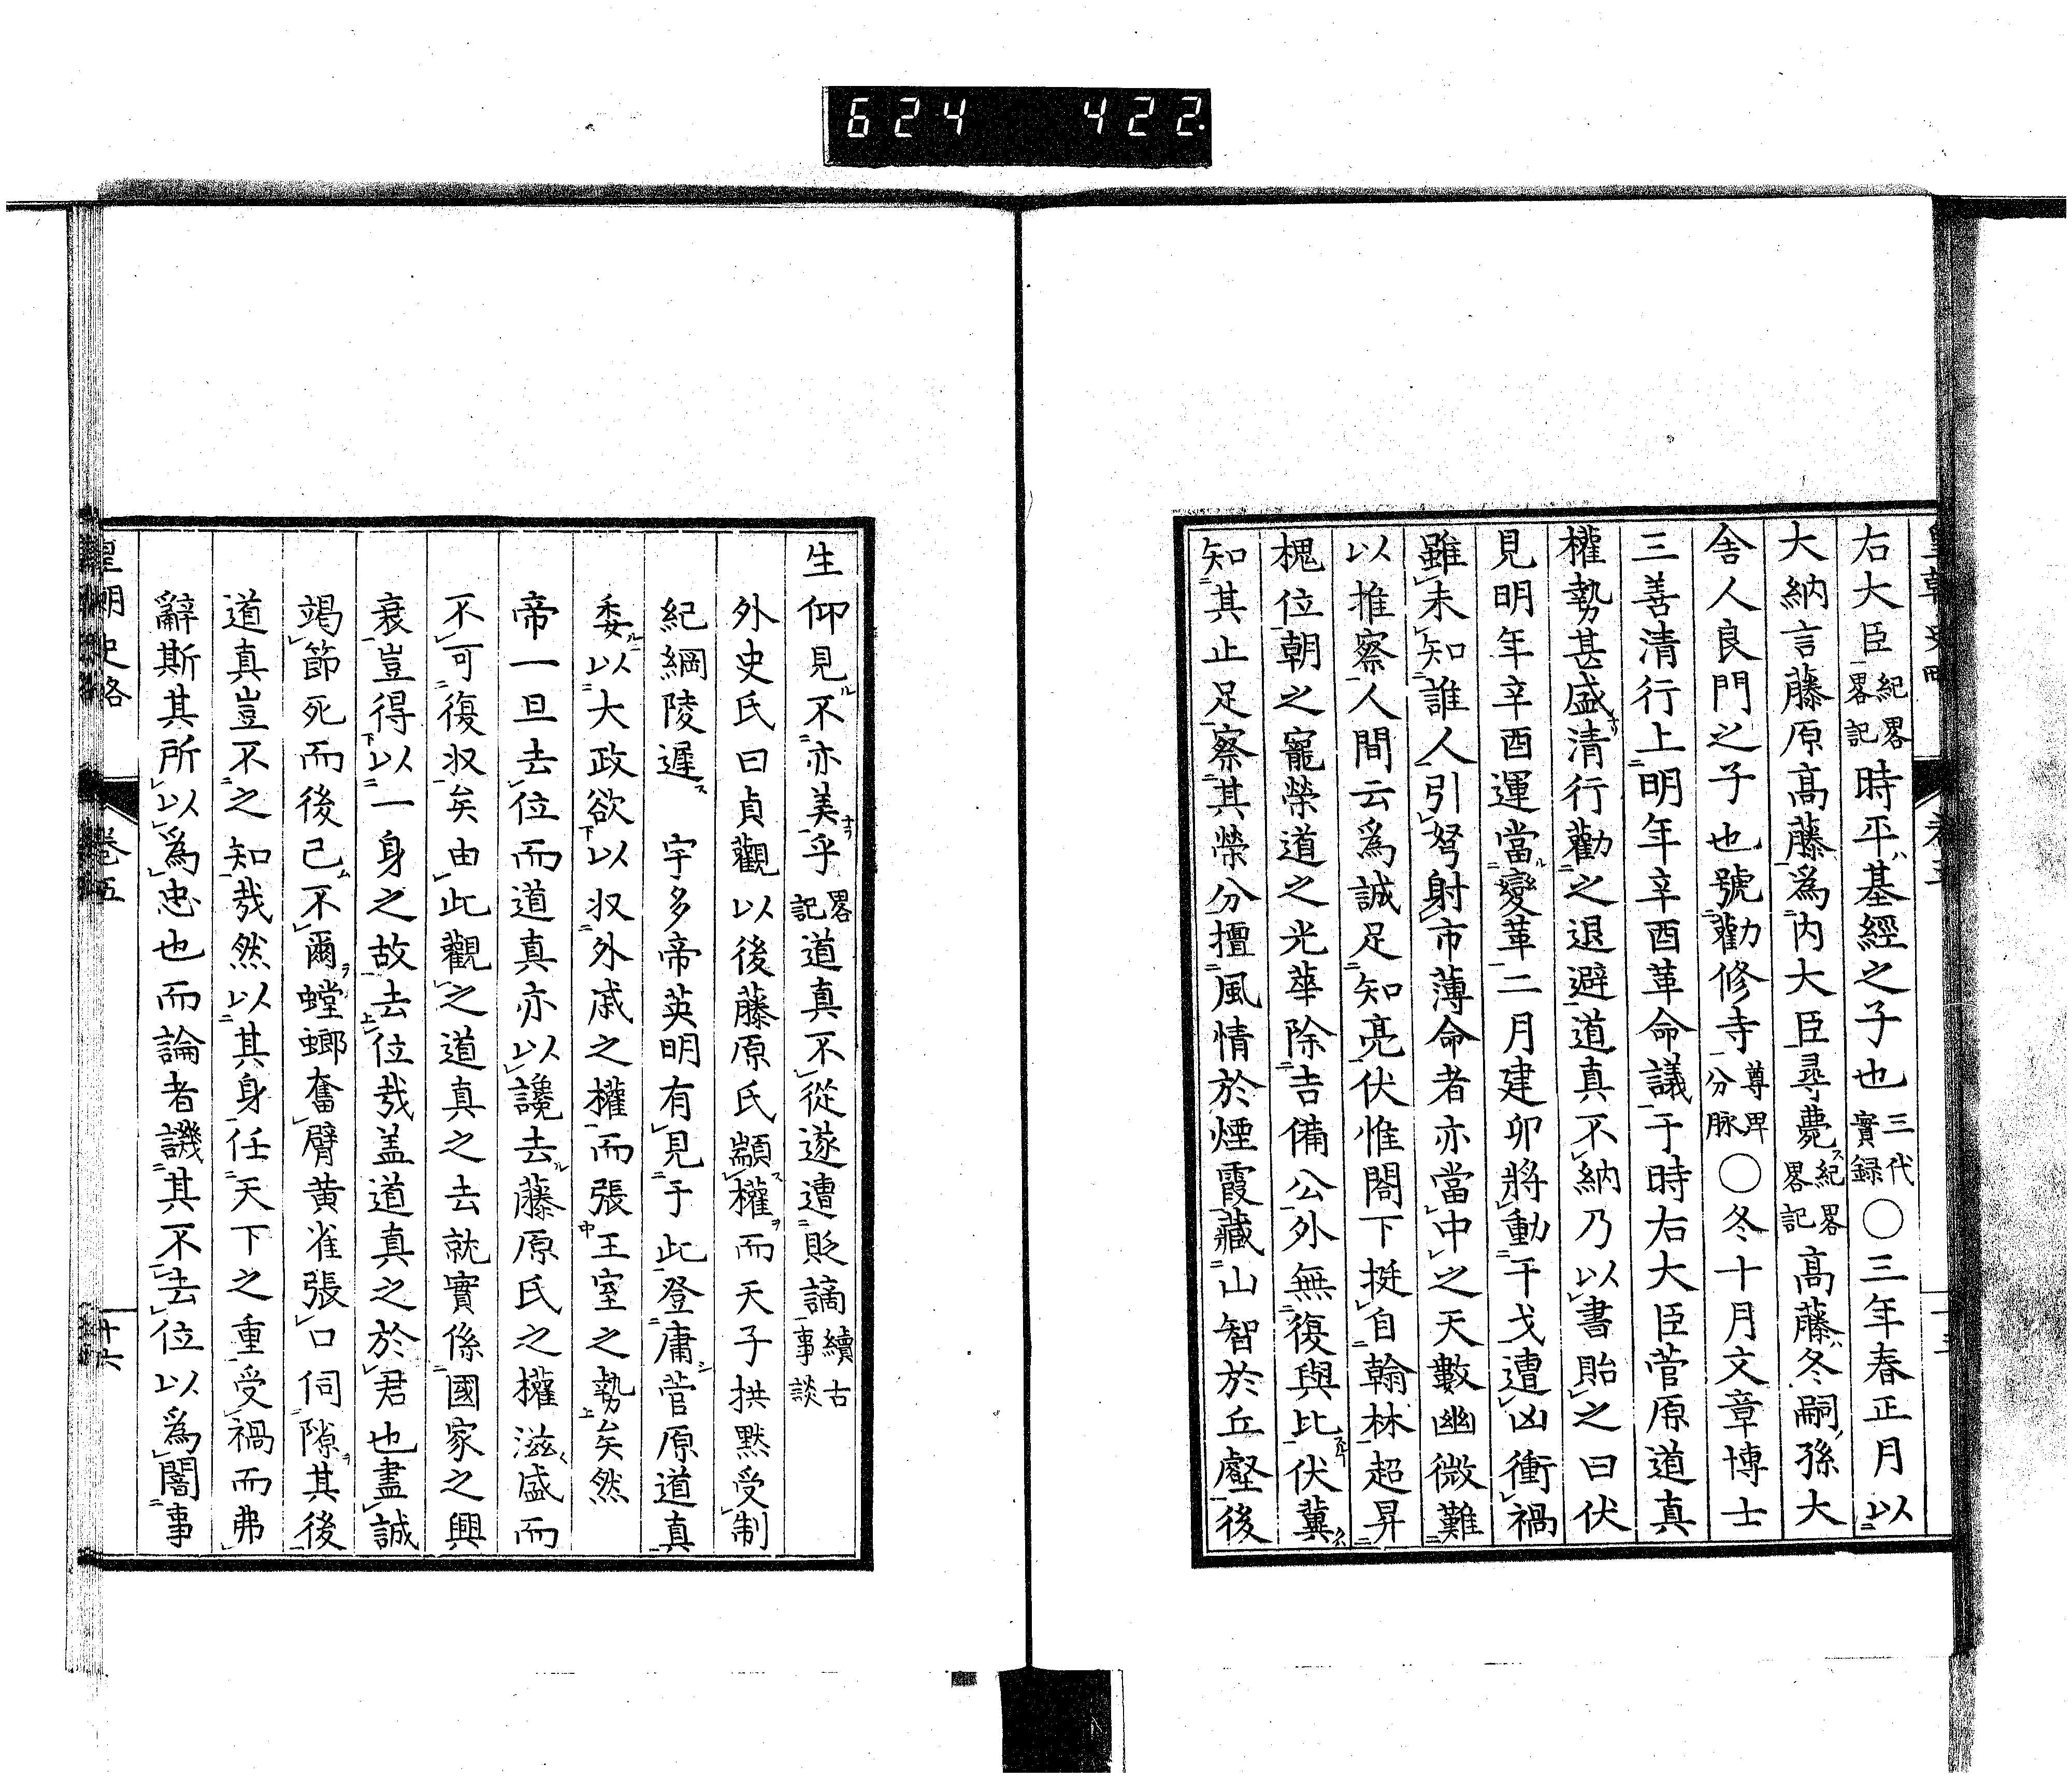 624 422
右大臣紀畧畧記時平基經之子也三代實録〇三年春正月以
大納言藤原高藤爲内大臣尋薨紀畧畧記高藤冬嗣孫大
舎人良門之子也號勸修寺尊卑分脉〇冬十月文章博士
三善清行上明年辛酉革命議于時右大臣菅原道真
權勢甚盛清行勸之退避道真不納乃以書貽之曰伏
見明年辛酉運當變革二月建卯將動干戈遭凶衝禍
雖未知誰人引弩射市薄命者亦當中之天數幽微難
以推察人間云爲誠足知亮伏惟閤下挺自翰林超昇
槐位朝之寵榮道之光華除吉備公外無復與比伏冀
知其止足察其榮分擅風情於煙霞藏山智於丘壑後
生仰見不亦美乎畧記道真不從遂遭貶謫續古事談
外史氏曰貞觀以後藤原氏顓權而天子拱默受制
紀綱陵遲 宇多帝英明有見于此登庸菅原道真
委以大政欲以収外戚之權而張王室之勢矣然
帝一旦去位而道真亦以讒去藤原氏之權滋盛而
不可復収矣由此觀之道真之去就實係國家之興
衰豈得以一身之故去位哉盖道真之於君也盡誠
竭節死而後己不爾螳螂奮臂黄雀張口伺隙其後
道真豈不之知哉然以其身任天下之重受禍而弗
辭斯其所以爲忠也而論者譏其不去位以爲闇事
皇朝史略 卷五 十六